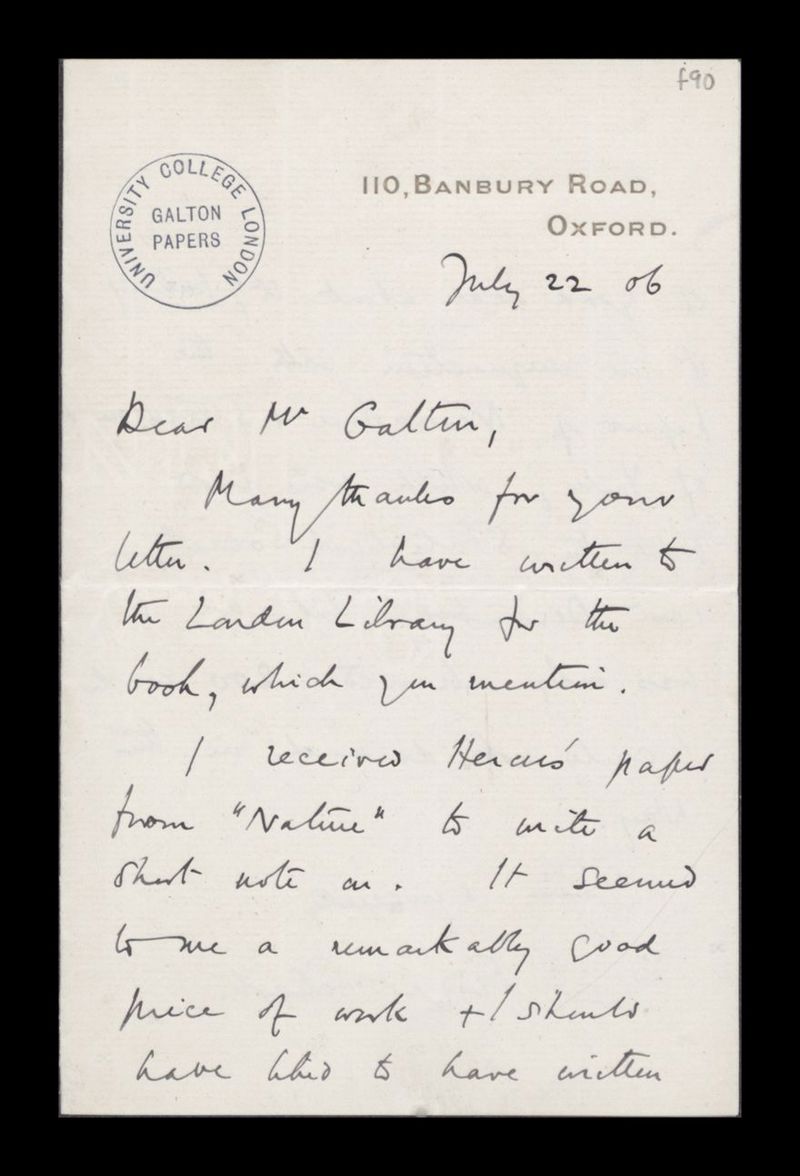 f90
UNIVERSITY COLLEGE LONDON
GALTON
PAPERS
110, BANBURY ROAD,
OXFORD.
July 22 06
Dear Mr Galton,
Many thanks for your
letter. I have written to
the London Library for the
book, which you mention.
I received Heron's paper
from "Nature" to write a
short note on. It seemed
to me a remarkably good
piece of work + I should
have liked to have written